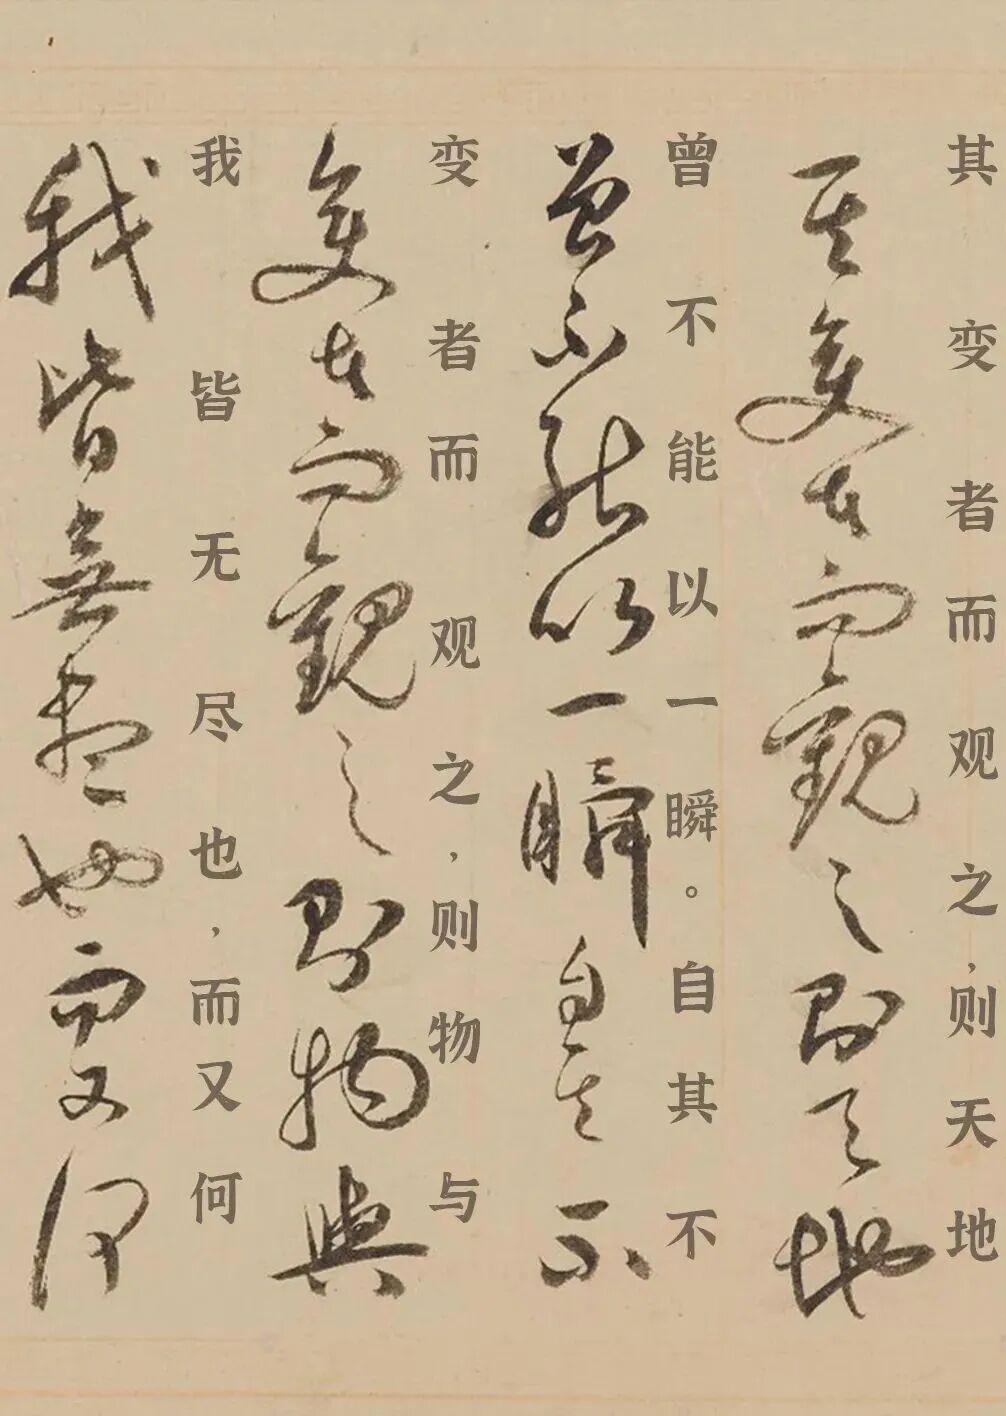 其变者而观之，则天地
其變者而觀之則天地
曾不能以一瞬。自其不
曾不能以一瞬自其不
变者而观之，则物与
變者而觀之則物與
我皆无尽也，而又何
我皆無盡也而又何